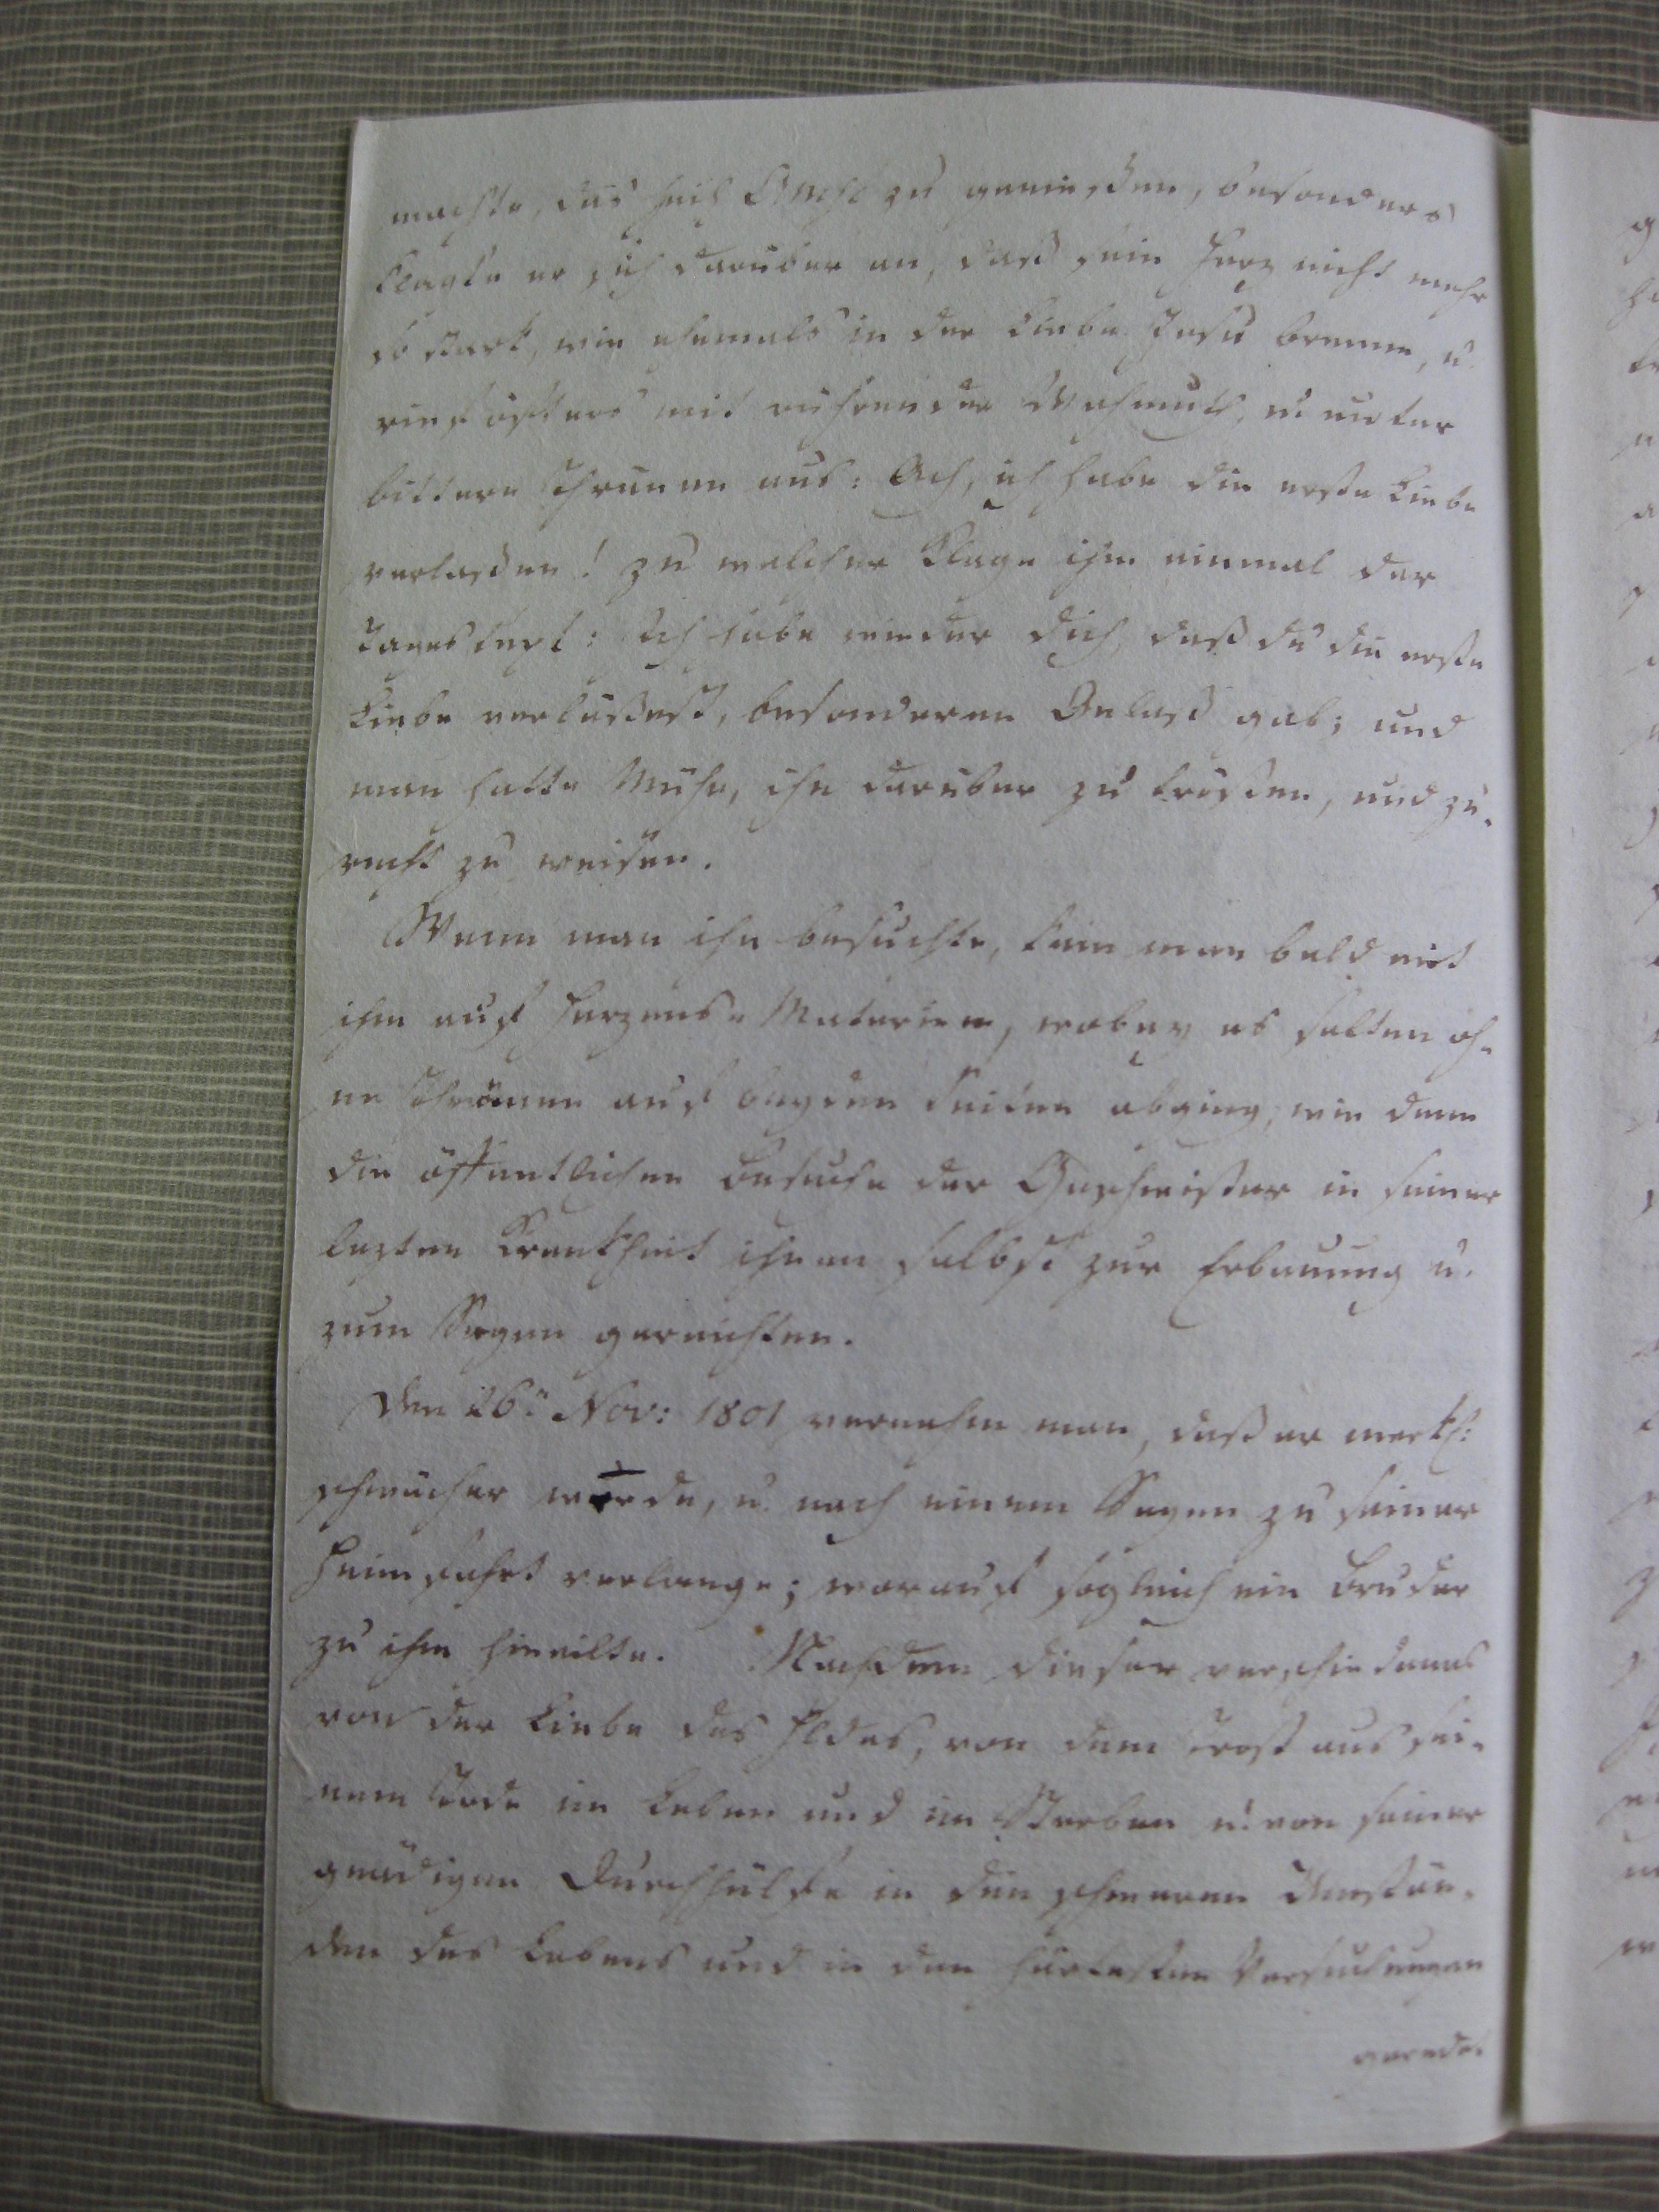 machte, das heil. Abmhl zu genießen, besonders
klagte er sich darüber an, daß sein Herz nicht mehr
so stark, wie ehemals in der Liebe Jesu brenne, u.
rief öfters mit rührender Wehmuth, u. unter
bittern Thränen aus: Ach, ich habe die erste Liebe
verlaßen! zu welcher Klage ihm einmal der
Tagestext: Ich habe wieder dich, daß du die erste
Liebe verläßest, besonderen Anlaß gab; und
man hatte Mühe, ihn darüber zu trösten, und zu-
recht zu weisen.
Wenn man ihn besuchte, kam man bald mit
ihm auf Herzens-Materien, wobey es selten oh-
ne Thränen auf beyden Seiten abging, wie denn
die öffentlichen Besuche der Geschwister in seiner
lezten Krankheit ihnen selbst zur Erbauung u.
zum Segen gereichten.
Den 26n Nov: 1801 vernahm man, daß er merkl:
schwächer werde, u. nach einem Segen zu seiner
Heimfahrt verlange; worauf sogleich ein Bruder
zu ihm hineilte. Nachdem dieser verschiedenes
von der Liebe des Hldes, von dem Trost aus sei-
nem Tode im Leben und im Sterben u. von seiner
gnädigen Durchhülfe in den schweren Umstän-
den des Lebens und in den härtesten Versuchungen
geredet